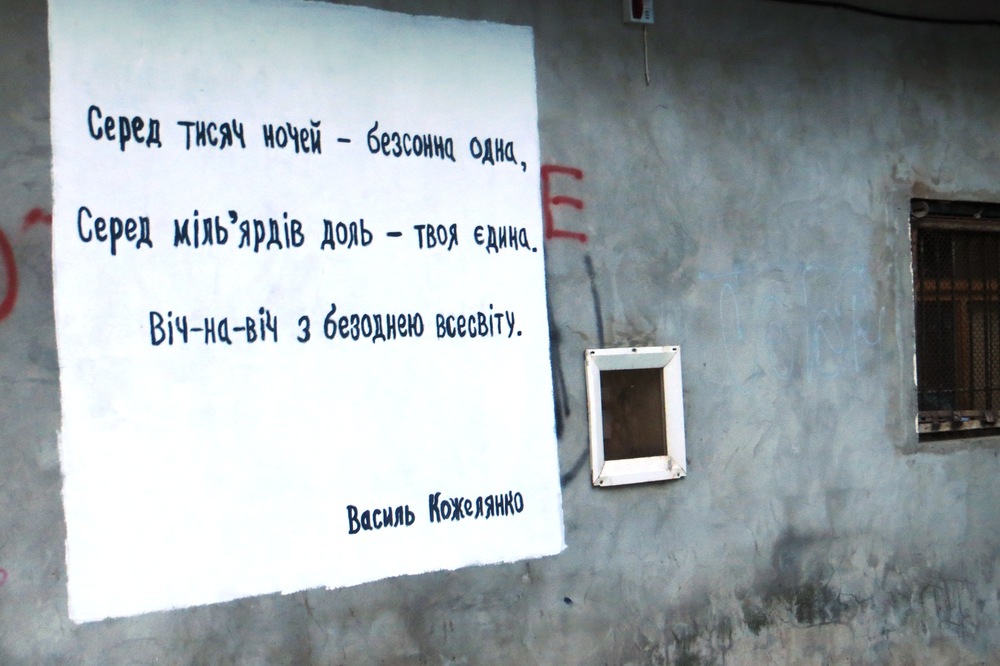 Серед тисяч ночей – безсонна одна,
Серед міль’ярдів доль – твоя єдина.
Віч-на-віч з безоднею всесвіту.
Василь Кожелянко
Е